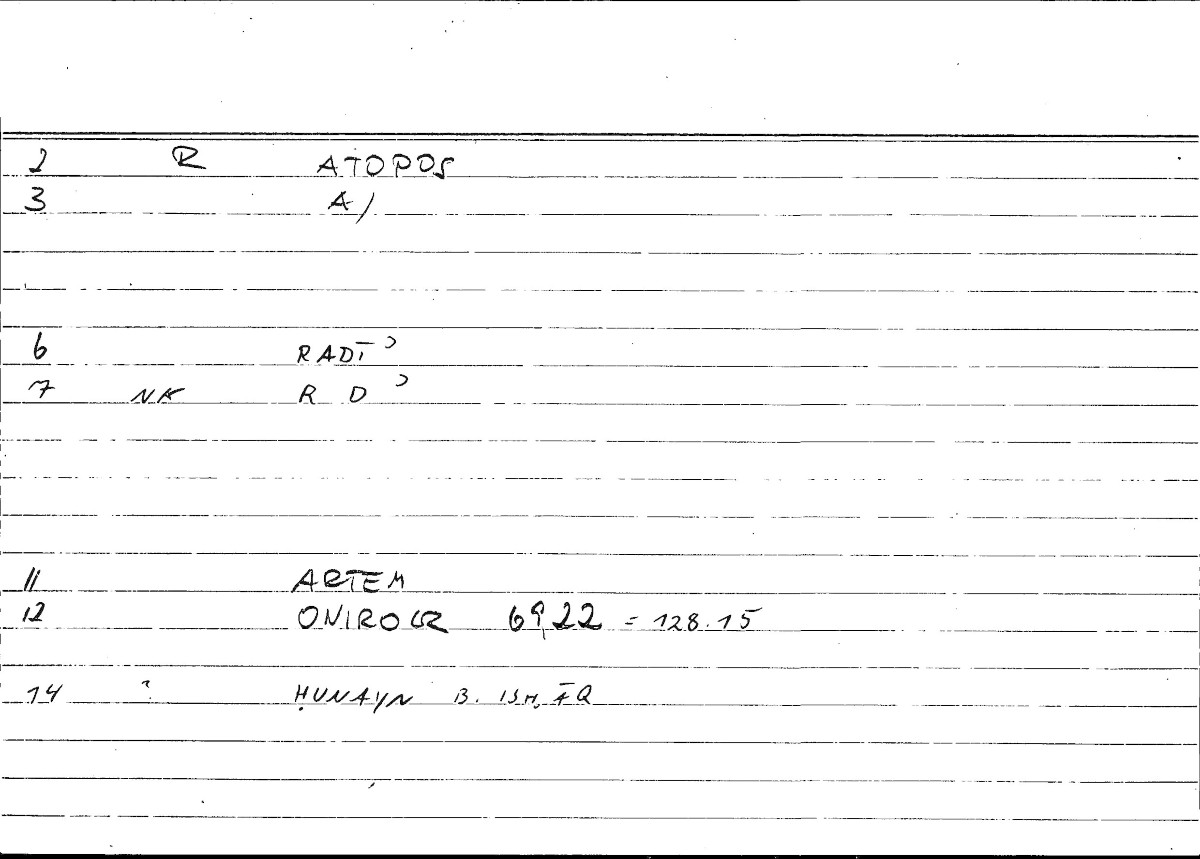 2 R ATOPOS
3 A/
6 RADĪʾ
7 NK R D ʾ
11 ARTEM
12 ONIROCR 69,22 = 128.15
14 ? ḤUNAYN B. ISḤĀQ